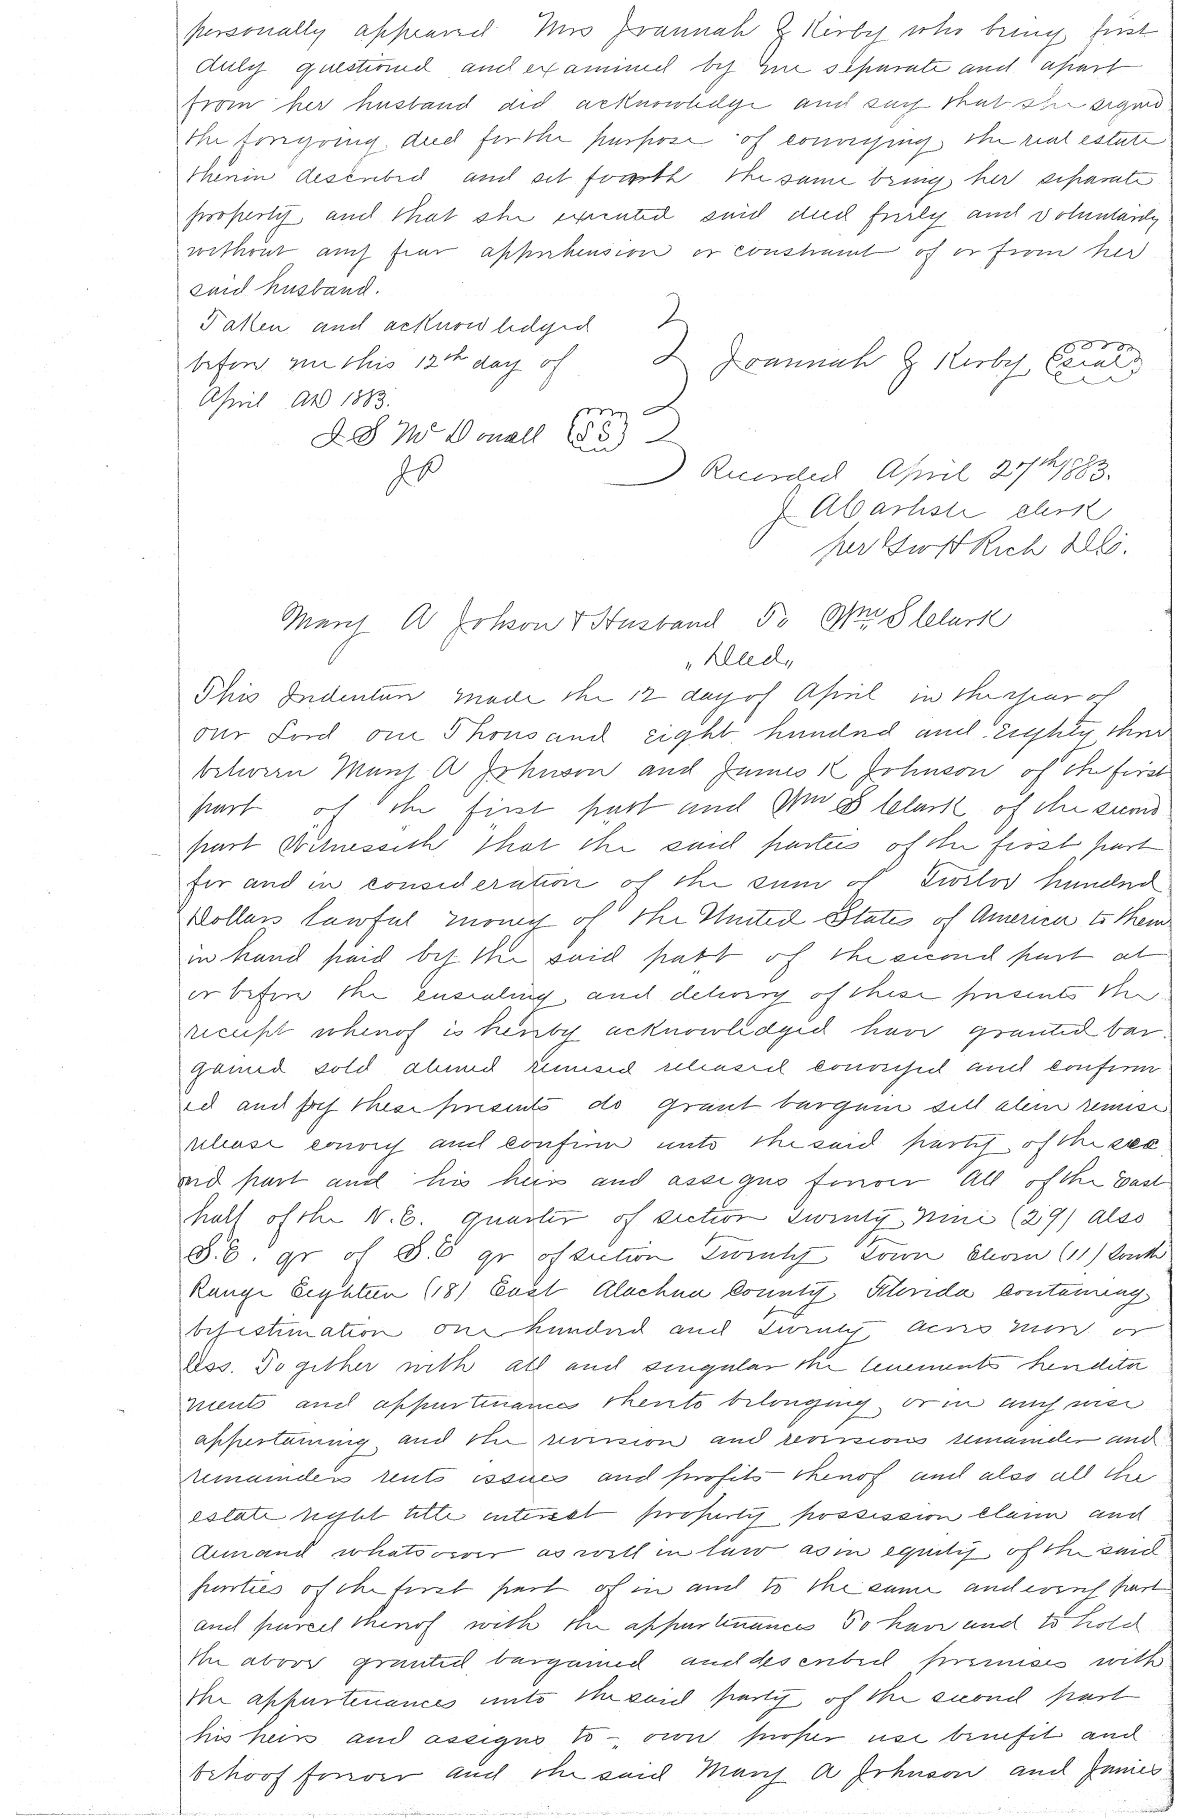 personally appeared Mrs Joannah G Kirby who being first
duly questioned and examined by me separate and apart
from her husband did acknowledge and say that she signed
the foregoing deed for the purpose of conveying the real estate
therein described and set fourth the same being her separate
property and that she executed said deed freely and voluntarily
without any fear apprehension or constraint of or from her
said husband.
Taken and acknowledged
before me this 12th day of Joannah G Kerby (Seal)
April AD 1883.
McDonall (SS)
JP
Recorded April 27th 1883.
J A Carlisle clerk
per Geo H Rich D.C.
Mary A Johson & Husband To Wm S Clark
"Deed"
This Indenture made the 12 day of April in the year of
our Lord one Thousand eight hundred and Eighty three
between Mary A Johnson and James K Johnson of the first
part of the first part and Wm S Clark of the second
part Witnesseth that the said parties of the first part
for and in consideration of the sum of Twelve hundred
Dollars lawful money of the United States of America to them
in hand paid by the said part of the second part at
or before the ensealing and delivery of these presents the
receipt whereof is hereby acknowledged have granted bar
gained sold aliened remised released conveyed and confirm
ed and by these presents do grant bargain sell alein remise
release convey and confirm unto the said party of the sec
ond part and his heirs and assigns forever All of the East
half of the N.E. quarter of section Twenty Nine (29) also
S.E. qr of S.E qr of section Twenty Town Eleven (11) South
Range Eighteen (18) East Alachua County Florida containing
by estimation one hundred and twenty acres more or
less. Together with all and singular the tenements heredita
ments and appurtenances thereto belonging or in any wise
appertaining and the reversion and reversions remainder and
remainders rents issues and profits thereof and also all the
estate right title interest property possession claim and
demand whatsoever as well in law as in equity of the said
parties of the first part of in and to the same and every part
and parcel thereof with the appurtenances To have and to hold
the above granted bargained and described premises with
the appurtenances unto the said party of the second part
his heirs and assigns to - own proper use benefit and
behoof forever and the said Mary A Johnson and James